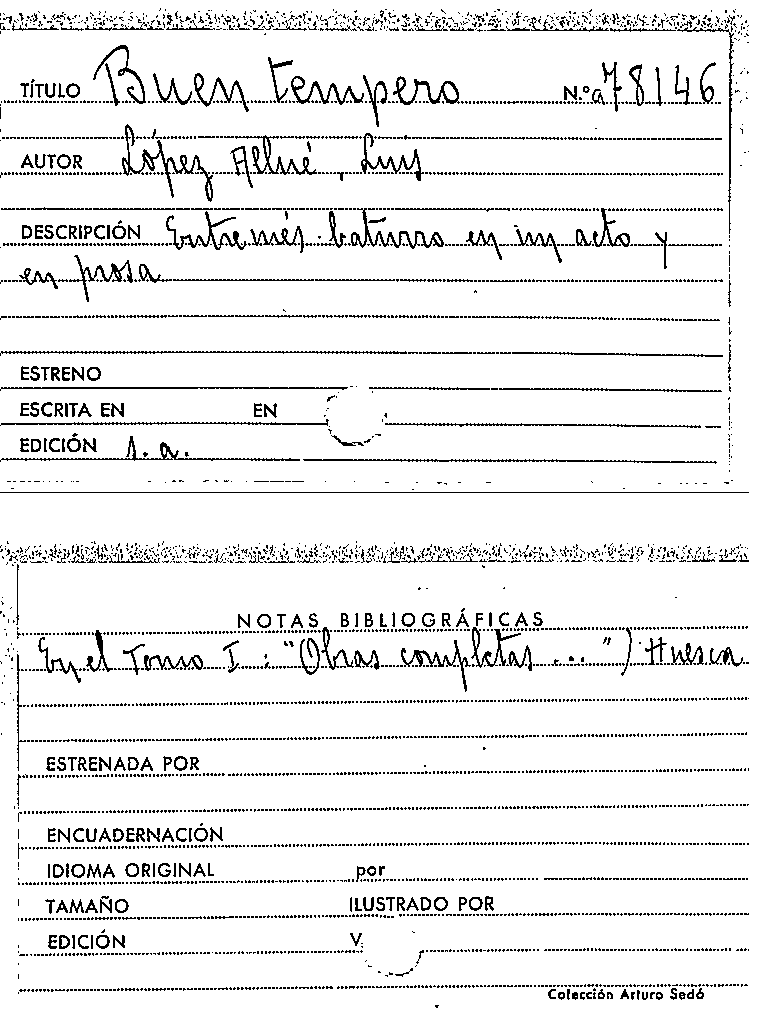 TÍTULO Buen tempero N.º a 78146
AUTOR López Allué, Luis
DESCRIPCIÓN Entremés baturro en un acto y
en prosa
ESTRENO
ESCRITA EN EN
EDICIÓN s.a.
NOTAS BIBLIOGRÁFICAS
En el Tomo I: "Obras completas ...") Huesca
ESTRENADA POR
ENCUADERNACIÓN
IDIOMA ORIGINAL por
TAMAÑO ILUSTRADO POR
EDICIÓN V
Colección Arturo Sedó